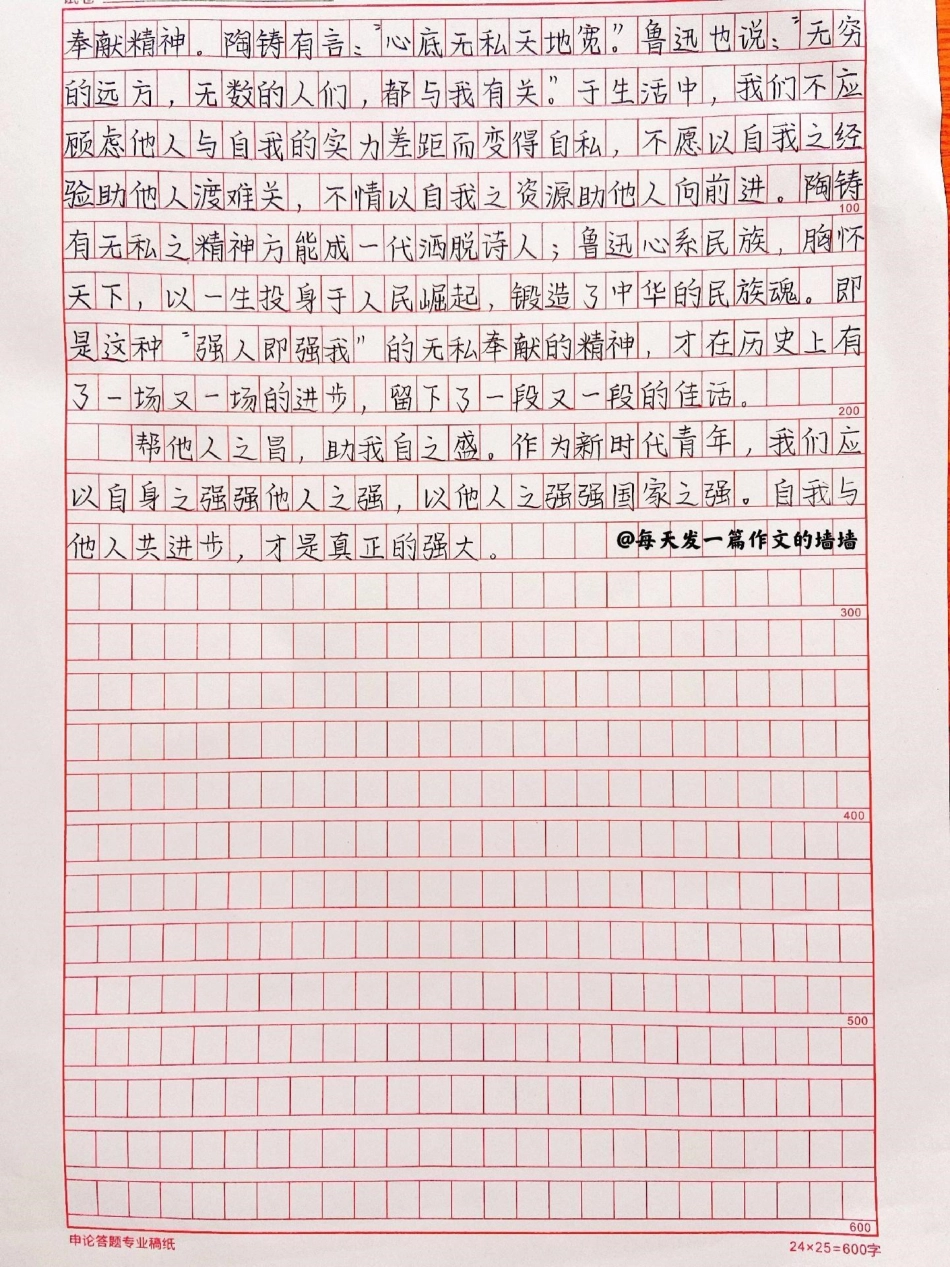 奉献精神。陶铸有言：“心底无私天地宽。”鲁迅也说：“无穷
的远方，无数的人们，都与我有关。”于生活中，我们不应
顾虑他人与自我的实力差距而变得自私，不愿以自我之经
验助他人渡难关，不情以自我之资源助他人向前进。陶铸
100
有无私之精神方能成一代洒脱诗人；鲁迅心系民族，胸怀
天下，以一生投身于人民崛起，锻造了中华的民族魂。即
是这种“强人即强我”的无私奉献的精神，才在历史上有
了一场又一场的进步，留下了一段又一段的佳话。
200
帮他人之昌，助我自之盛。作为新时代青年，我们应
以自身之强强他人之强，以他人之强强国家之强。自我与
他人共进步，才是真正的强大。
@每天发一篇作文的墙墙
300
400
500
600
申论答题专业稿纸
24×25=600字